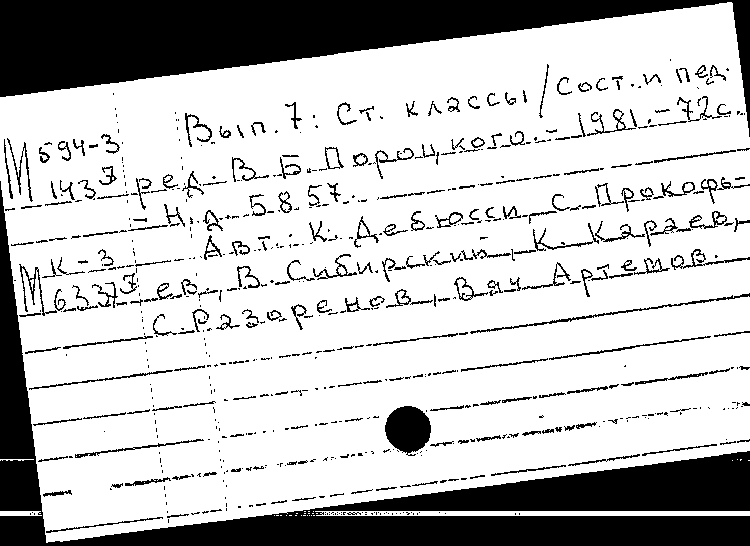 М 594-3 Вып. 7: Ст. классы / Сост. и пед.
143⁷ ред. В Б. Пороцкого. - 1981. - 72с.
- Н. д. 5857.
М К-3 Авт.: К. Дебюсси, С. Прокофь-
6337⁷ ев., В. Сибирский, К. Караев,
С. Разоренов, Вяч Артемов.